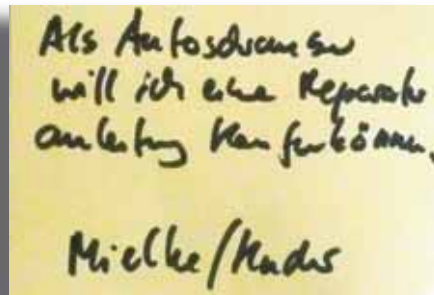 Als Autoschrauber
will ich eine Reparatur
anleitung kaufen können.
Mielke/